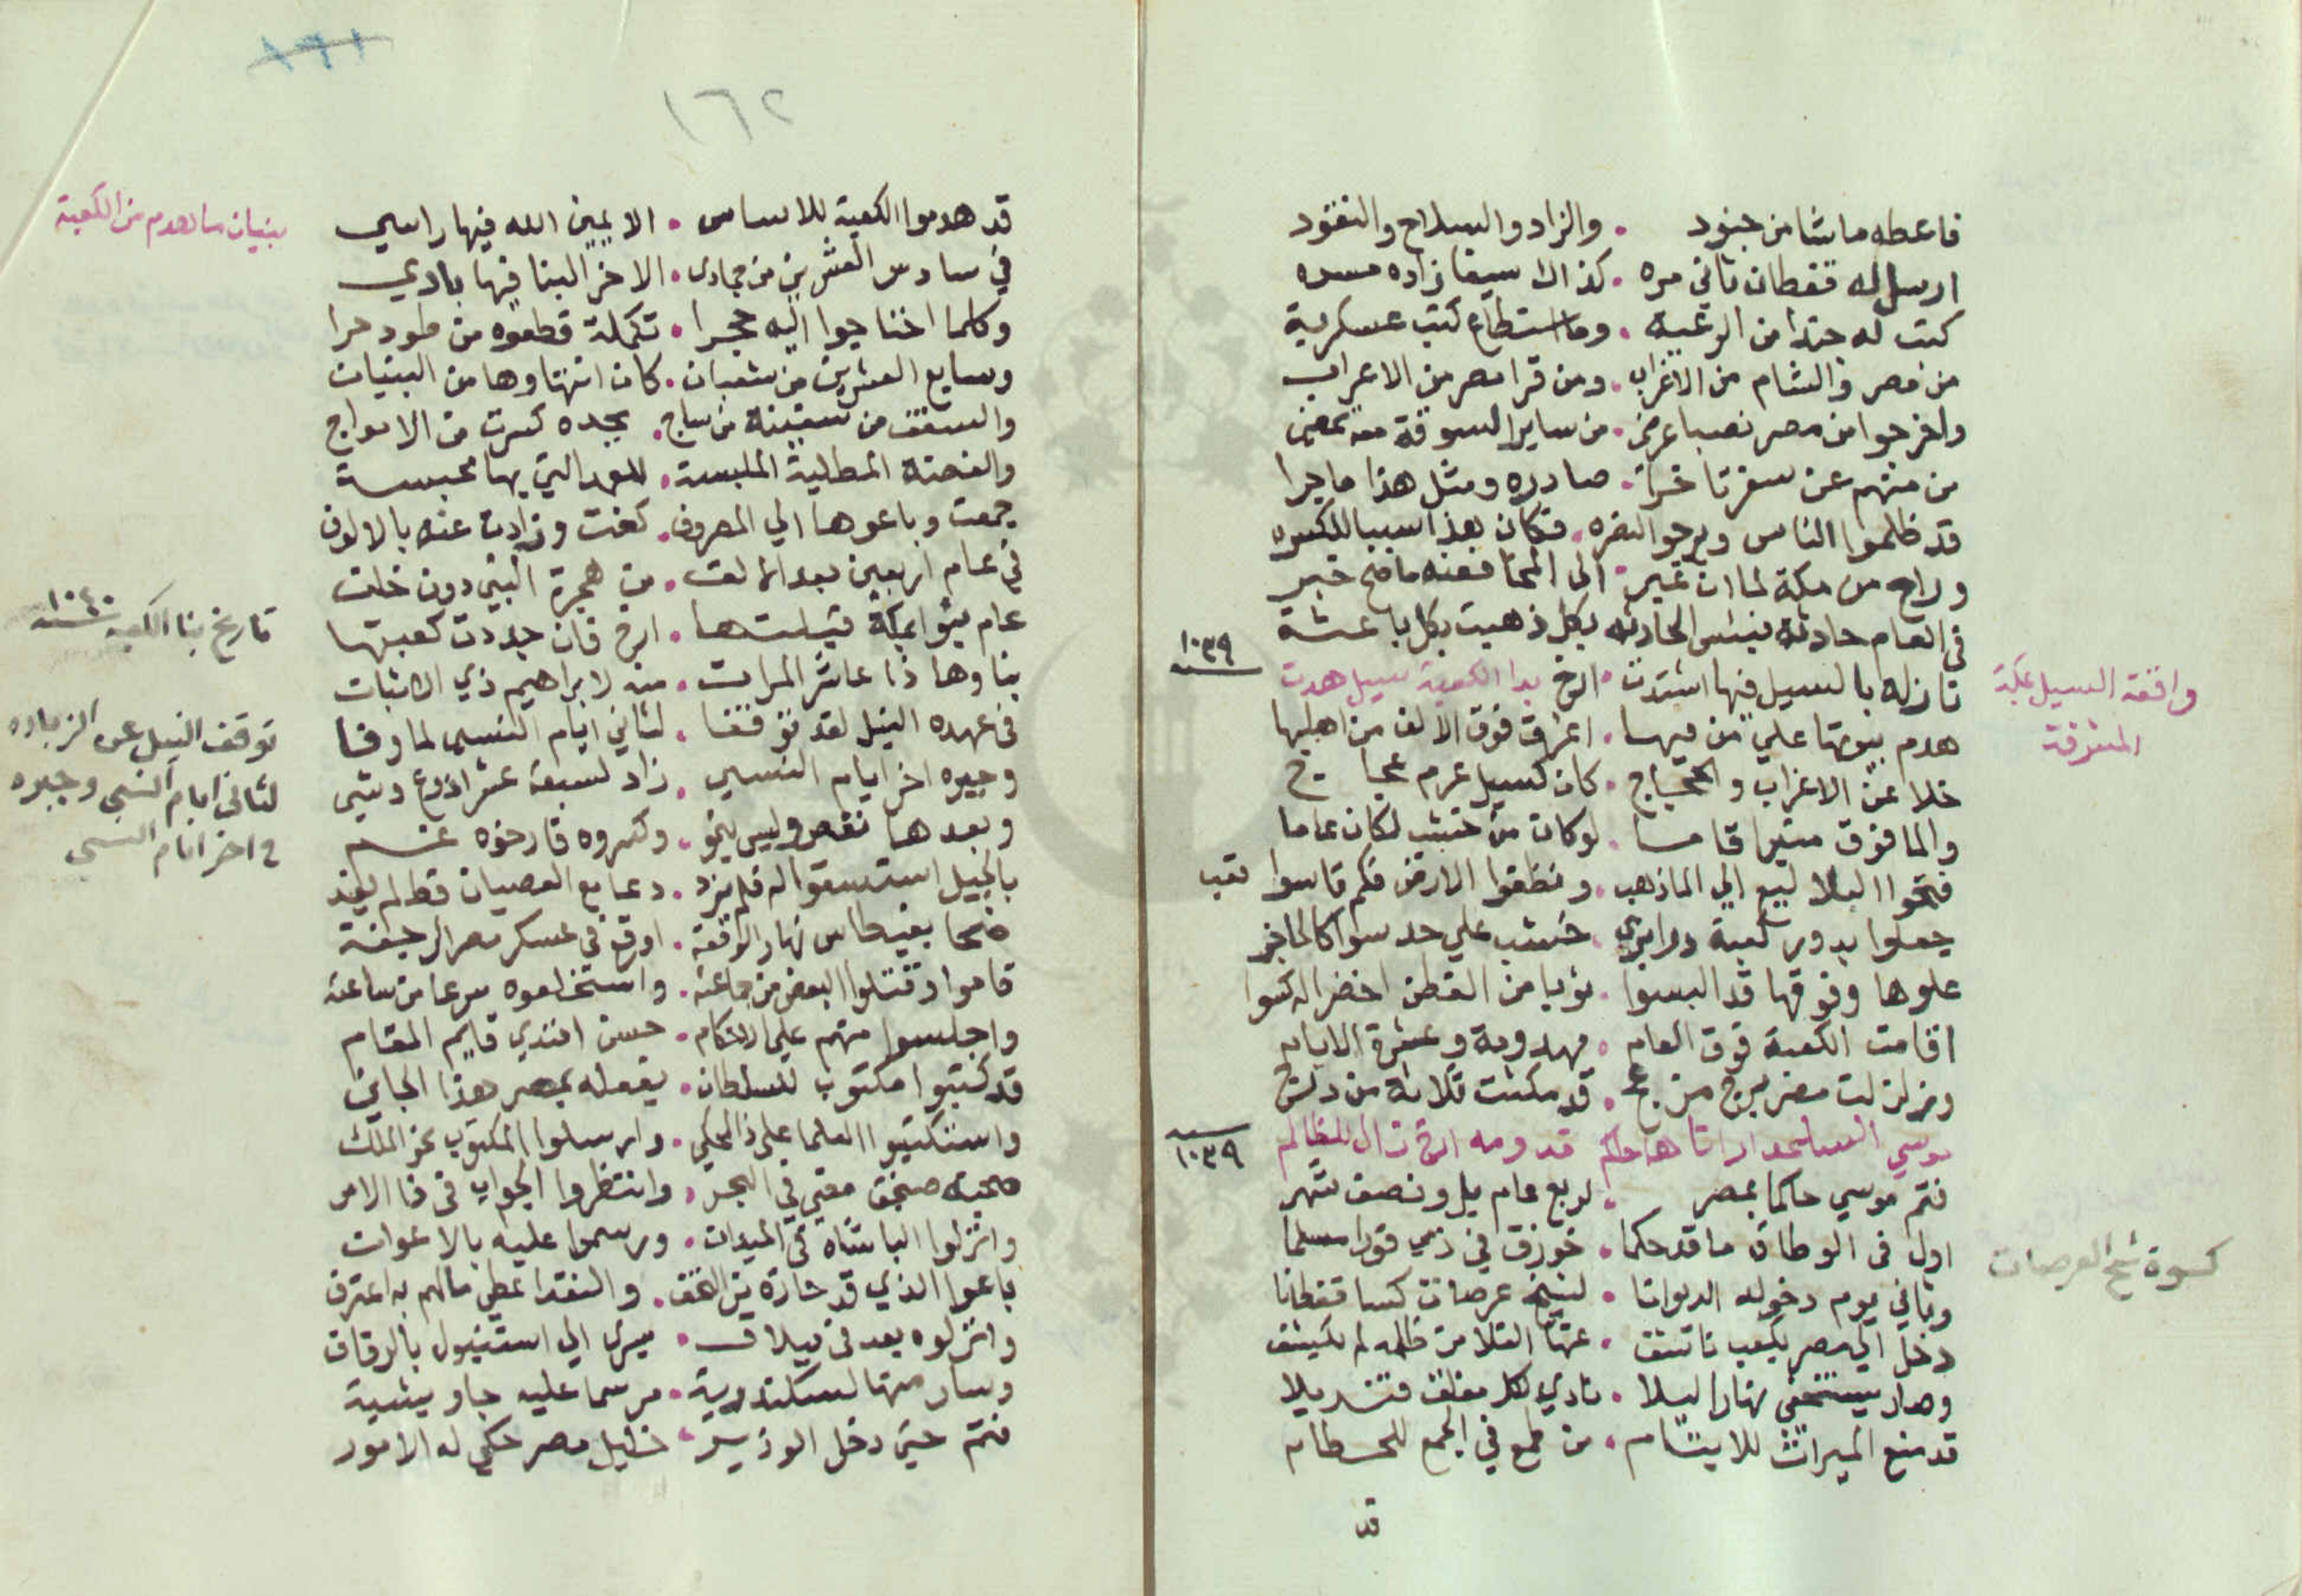 فاعطه ماشا من جنود . والزاد والسلاح والنقود
ارسل له قفطان ثاني مره . كذالك سيفا زاده مسره
كتب له جندا من الرعية . وما استطاع كتب عسكرية
من مصر والشام من الاغراب . ومن قرا مصر من الاعراب
واخرجوا من مصر نصبا عرضي . من ساير السوقة معه تمضى
من منهم عن سفر تاخرا . صادره ومثل هذا ما جرا
قد ظلموا الناس ويرجو النصره . فكان هذا سببا للكسره
وراح من مكة لما ان غير . الى المخا فعنه ما صح خبر
في العام حادثة ينسى الحادثه بكل ذهبت بكل باعثة
١٠٣٩
نازله بالسيل فيها اشتدت . ارخ بدا الكعبة سيل هدت
واقعة السيل بمكة
المشرفة
هدم بيوتها علي من فيها . اغرق فوق الالف من اهليها
خلا عن الاغراب والحجاج . كان كسيل عرم عجاج
والما فوق منبر اقاما . لو كان من خشب لكان عاما
فتحوا البلاليع الي الما ذهب . ونظفوا الارض فكم قاسوا تعب
جعلوا بدور كعبة درابزي . خشب علي حد سوا كالحاجز
علوها وفوقها قد البسوا . ثوبا من القطن اخضر اله كسوا
اقامت الكعبة فوق العام . مهدومة وعشرة الايام
وزلزلت مصر . قد مكثت ثلاثة من درج
موسي السلحدار اتاها حاكم قدومه ارخ زال للظالم
سنة ١٠٣٩
فتم موسي حاكما بمصر . لربع عام بل ونصف شهر
اول في الوطاق ما قد حكما . خوزق في ذمي قورا مسلما
وثاني يوم دخوله الديوانا . لشيخ عرصات كسا قفطانا
كسوة شيخ العرصات
دخل الي مصر بكعب ناشف . عنها الغلا من ظلمه لم يكشف
وصار يستخفي نهارا ليلا . نادي لكل مغلق قنديلا
قد منع الميراث للايتام . من طمع في الجمع للحطام
قد
١٦٢
قد هدموا الكعبة للاساس . الا يمين الله فيها راسي
بنيان ما هدم من الكعبة
في سادس العشرين من جمادى . الاخر البنا فيها بادي
وكلما احتاجوا اليه حجرا . تكملة قطعوه من طود حرا
وسابع العشرين من شعبان . كان انتهاوها من البنيان
والسقف من سفينة من ساج . بجده كسرت من الامواج
والفضة المطلية الملبسة . للعمد التي بها محبسة
جمعت وباعوها الي المصروف . كفت وزادت عنه بالالوف
في عام اربعين بعد الالف . من هجرة النبي دون خلف
تاريخ بنا الكعبة سنة ١٠٤٠
عام بنوا بمكة قبلتها . ارخ فان جددت كعبتها
بناوها ذا عاشر المرات . منه لابراهيم ذي الاثبات
في عهده النيل لقد توقفا . لثاني ايام النسي لما وفا
توقف النيل عن الزياده
لثاني ايام النسي وجبره
في اخر ايام النسي
وجبره اخر ايام النسي . زاد لسبعة عشر اذرع وشي
وبعدها نقص وليس ينمو . وكسروه فارخوه غم
بالجبل استسقوا له فلم يزد . دعا مع العصيان قط لم يفد
ضحا بقيطاس نهار الوقفة . اوقع في عسكر مصر الرجفة
قاموا وقتلوا البعض من جماعته . واستخلعوه سرعا من ساعته
واجلسوا منهم علي الاحكام . حسن افندي قايم المقام
قد كتبوا مكتوب للسلطان . يفعله بمصر هذا الجاني
واستكتبوا العلما علي ذا المحكي . وارسلوا المكتوب نحو الملك
صحبة صنجق مغني في البحر . وانتظروا الجواب في ذا الامر
وانزلوا الباشاه في الميدان . ورسموا عليه بالاعوان
باعوا الذي قد حازه بين الغفر . والنقد اعطي مالهم به اعترف
وانزلوه بعد في بيلاق . يسرى الي استنبول بالرقاق
وسار منها لسكندرية . مرسما عليه جاويشية
فتم حتى دخل الوزير . خليل مصر حكى له الامور